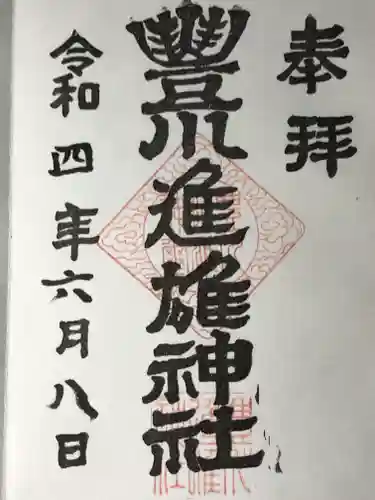 奉拝
豐川進雄神社
令和四年六月八日